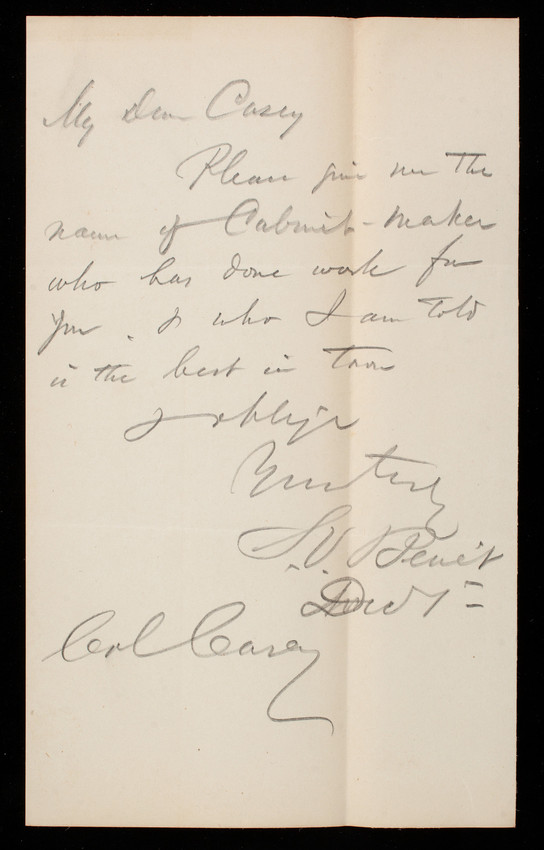 My Dear Casey
Please give me the
name of Cabinet-maker
who has done work for
you. & who I am told
is the best in town
& oblige
Yours truly
S.V. Benét
Col Casey